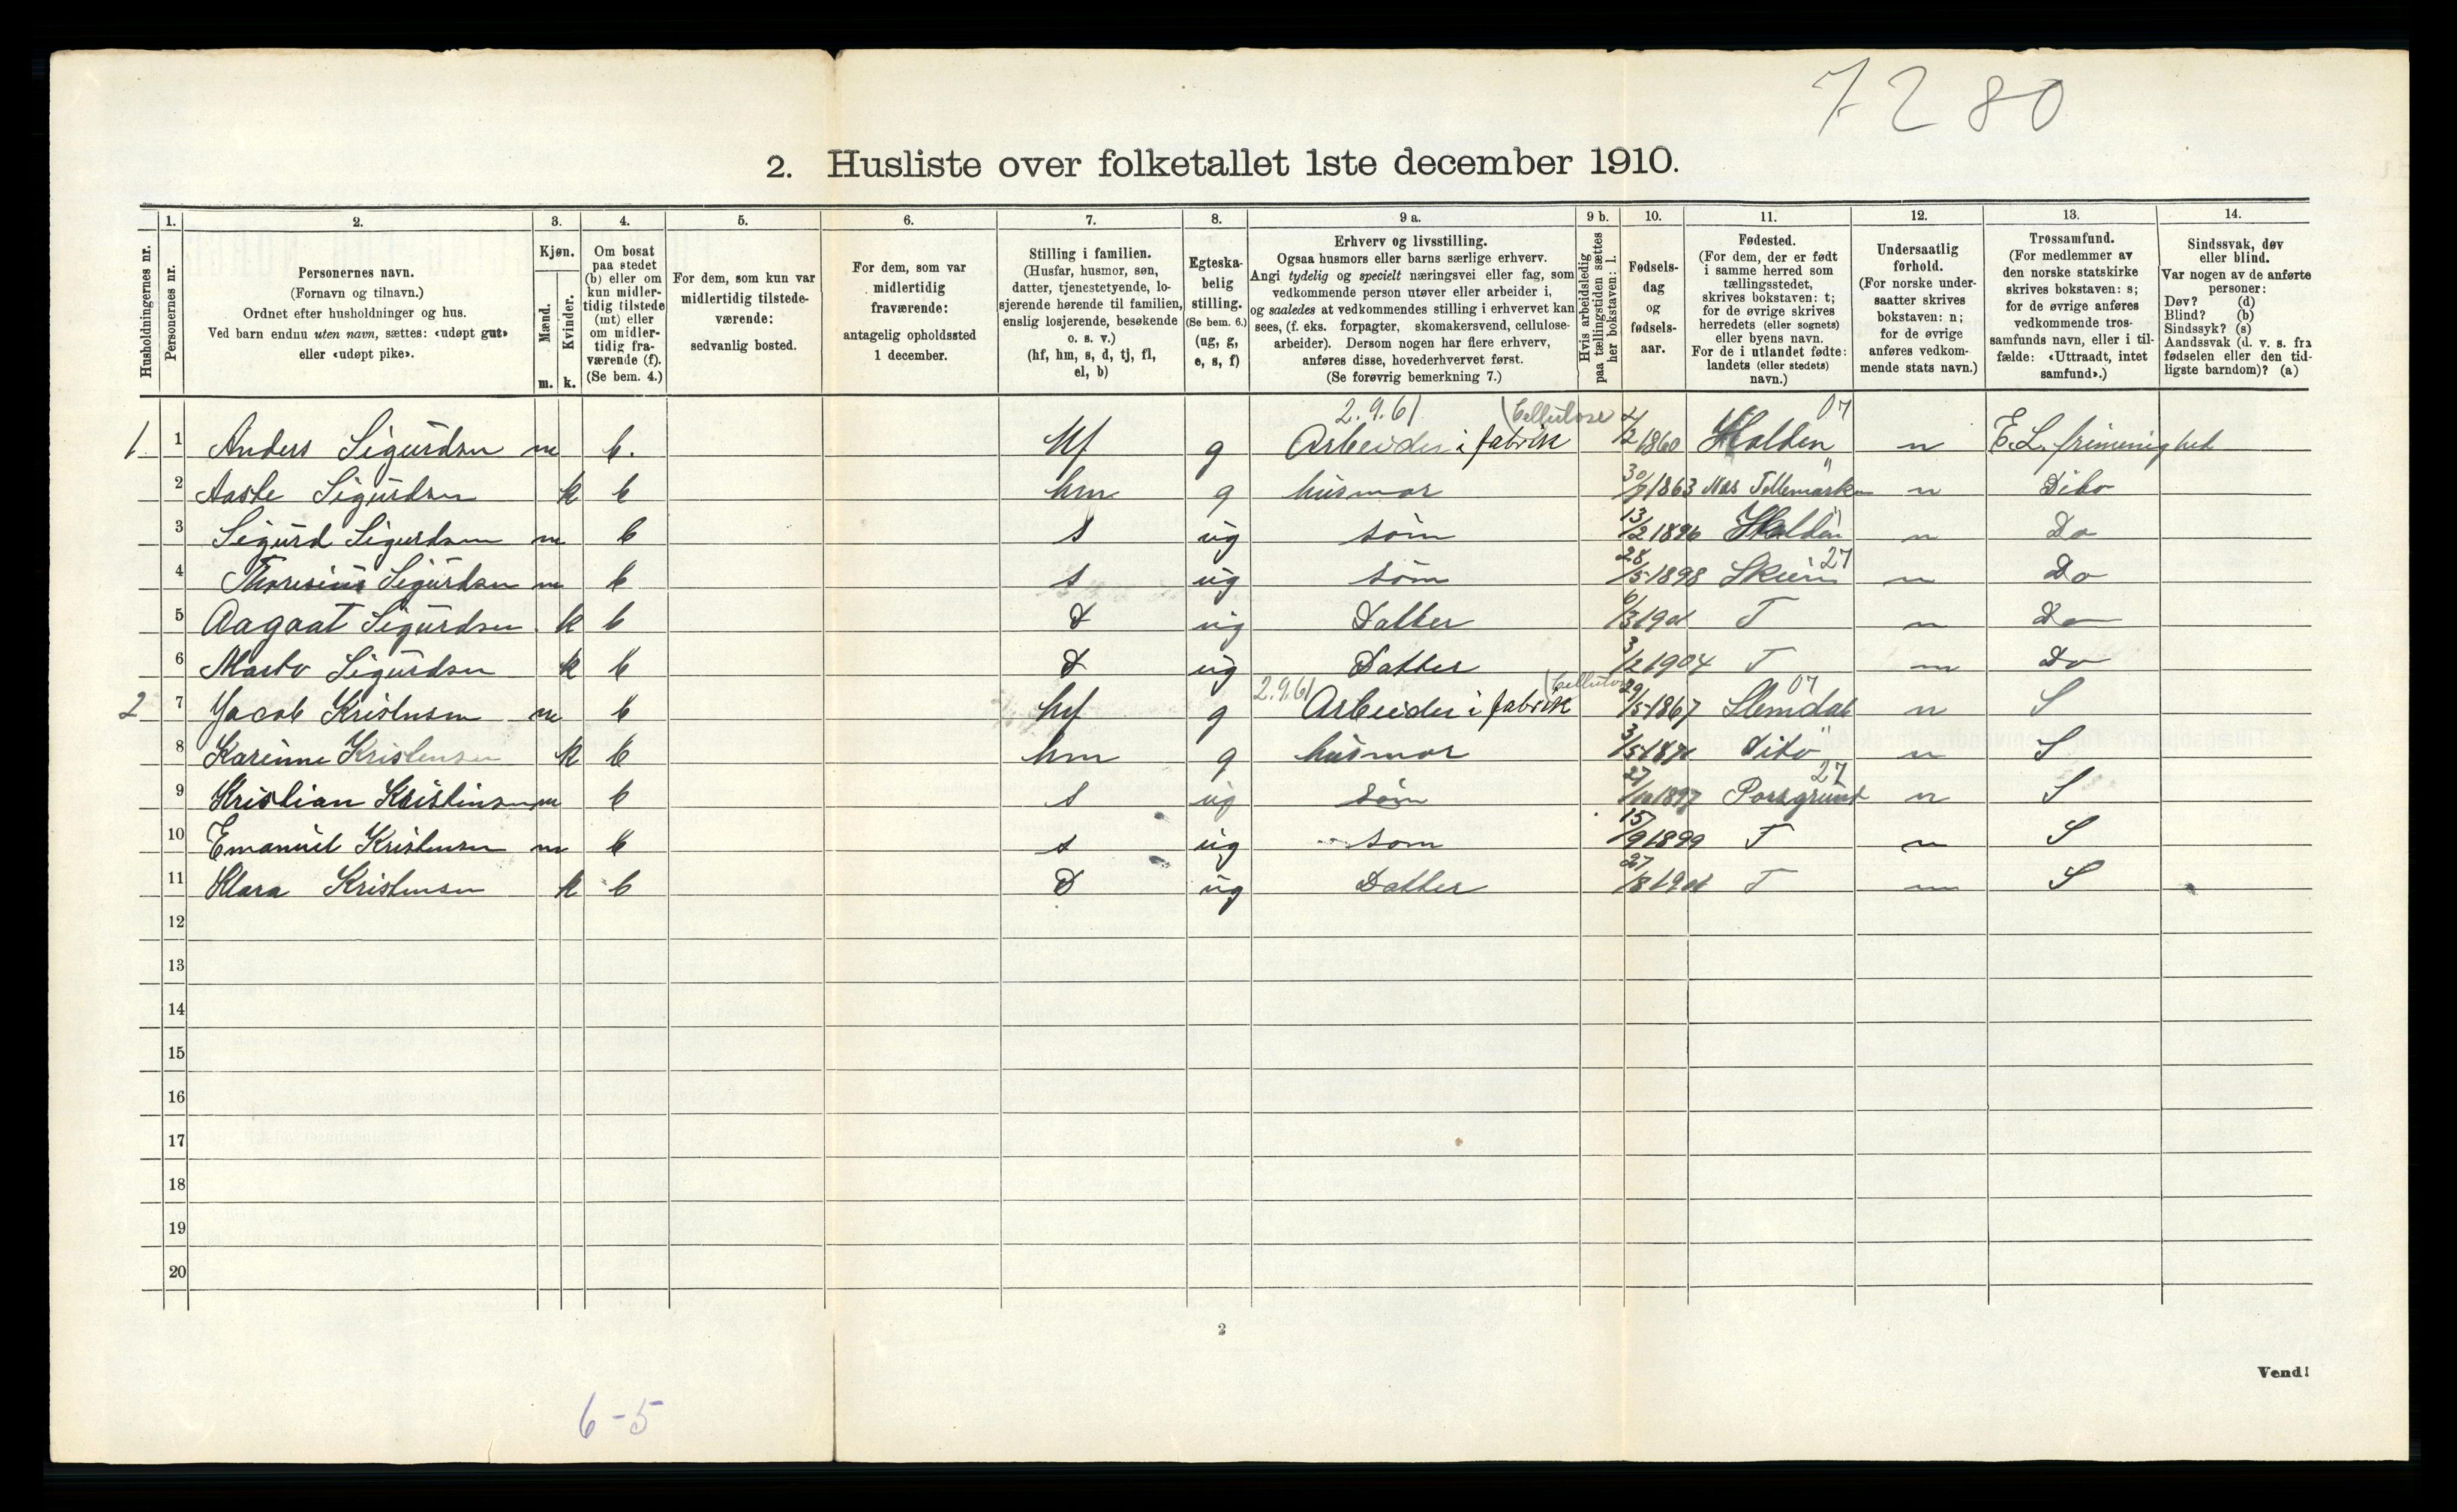 7280
2. Husliste over folketallet 1ste december 1910.
1. 2. 3. 4. 5. 6. 7. 8. 9 a. 9 b. 10. 11. 12. 13. 14.
Husholdningernes nr.
Personernes nr.
Personernes navn.
(Fornavn og tilnavn.)
Ordnet efter husholdninger og hus.
Ved barn endnu uten navn, sættes: «udøpt gut»
eller «udøpt pike».
Kjøn.
Mænd.
Kvinder.
m. k.
Om bosat
paa stedet
(b) eller om
kun midler-
tidig tilstede
(mt) eller
om midler-
tidig fra-
værende (f).
(Se bem. 4.)
For dem, som kun var
midlertidig tilstede-
værende:
sedvanlig bosted.
For dem, som var
midlertidig
fraværende:
antagelig opholdssted
1 december.
Stilling i familien.
(Husfar, husmor, søn,
datter, tjenestetyende, lo-
sjerende hørende til familien,
enslig losjerende, besøkende
o. s. v.)
(hf, hm, s, d, tj, fl,
el, b)
Egteska-
belig
stilling.
(Se bem. 6.)
(ug, g,
e, s, f)
Erhverv og livsstilling.
Ogsaa husmors eller barns særlige erhverv.
Angi tydelig og specielt næringsvei eller fag, som
vedkommende person utøver eller arbeider i,
og saaledes at vedkommendes stilling i erhvervet kan
sees, (f. eks. forpagter, skomakersvend, cellulose-
arbeider). Dersom nogen har flere erhverv,
anføres disse, hovederhvervet først.
(Se forøvrig bemerkning 7.)
Hvis arbeidsledig
paa tællingstiden sættes
her bokstaven: l.
Fødsels-
dag
og
fødsels-
aar.
Fødested.
(For dem, der er født
i samme herred som
tællingsstedet,
skrives bokstaven: t;
for de øvrige skrives
herredets (eller sognets)
eller byens navn.
For de i utlandet fødte:
landets (eller stedets)
navn.)
Undersaatlig
forhold.
(For norske under-
saatter skrives
bokstaven: n;
for de øvrige
anføres vedkom-
mende stats navn.)
Trossamfund.
(For medlemmer av
den norske statskirke
skrives bokstaven: s;
for de øvrige anføres
vedkommende tros-
samfunds navn, eller i til-
fælde: «Uttraadt, intet
samfund».)
Sindssvak, døv
eller blind.
Var nogen av de anførte
personer:
Døv? (d)
Blind? (b)
Sindssyk? (s)
Aandssvak (d. v. s. fra
fødselen eller den tid-
ligste barndom)? (a)
2.9.61 (Cellulose 07
1. 1 Anders Sigurdsen m b. hf g Arbeider i fabrik /2 1860 Holden n E.L. frimenighed
2 Aaste Sigurdsen k b hm g husmor 30/ 1863 Næs Tellemarken n Dito
3 Sigurd Sigurdsen m b s ug søn 13/2 1896 Holden n Do
27
4 Thoresius Sigurdsen m b s ug søn 28/5 1898 Skien n Do
5 Aagaat Sigurdsen k b D ug Datter 6/3 T n Do
6 Sigurdsen k b D ug Datter 3/2 1904 T n Do
2.9.61 (Cellulose 07
2 7 Jacob Kristensen m b hf g Arbeider i fabrik 29/5 1867 Slemdal n S
8 Karinne Kristensen k b hm g husmor 3/5 Dito n S
27
9 Kristian Kristensen m b s ug søn 27/10 1897 Porsgrund n S
10 Emanuel Kristensen m b s ug søn 15/9 1899 T n S
11 Klara Kristensen k b D ug Datter 27/8 T n S
12
13
14
15
16
17
18
19
20
2
Vend!
6-5